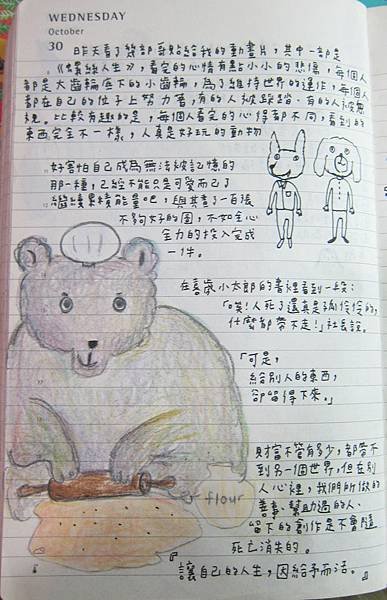 WEDNESDAY
October
30
昨天看了幾部哥貼給我的動畫片，其中一部是
《螺絲人生》，看完的心情有點小小的悲傷，每個人
都是大齒輪底下的小齒輪，為了維持世界的運作，每個人
都在自己的位子上努力著，有的人被踩踏、有的人被無
視。比較有趣的是，每個人看完的心得都不同，看到的
東西完全不一樣，人真是好玩的動物
好害怕自己成為無法被記憶的
那一種，已經不能只是可愛而已了
繼續累積能量吧，與其畫了一百張
不夠好的圖，不如全心
全力的投入完成
一件。
在喜多小太郎的書裡看到一段：
「哎！人死了還真是孤伶伶的，
什麼都帶不走！」社長說。
「可是，
給別人的東西，
卻留得下來。」
財富不管有多少，都帶不
到另一個世界，但在別
人心裡，我們所做的
善事、幫助過的人、
留下的創作是不會隨
死亡消失的。
flour
『讓自己的人生，因給予而活。』